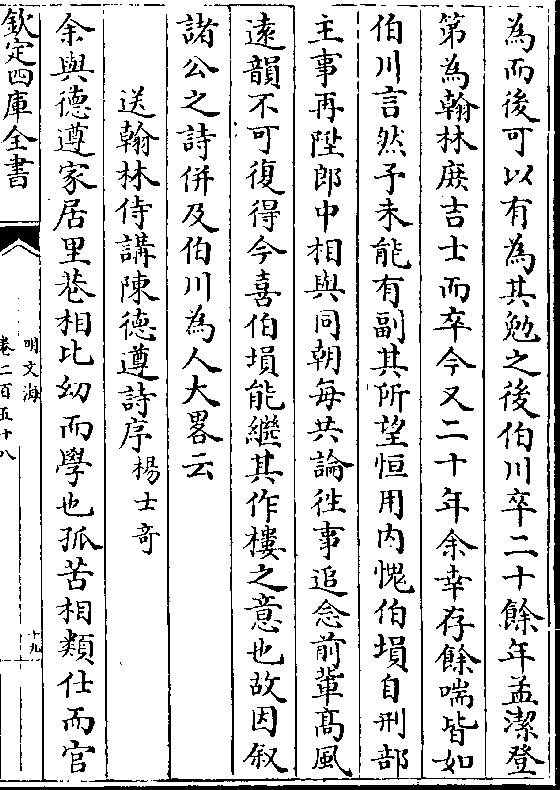 為而後可以有為其勉之後伯川卒二十餘年孟潔登
第為翰林庶吉士而卒今又二十年余幸存餘喘皆如
伯川言然予未能有副其所望恒用内愧伯塤自刑部
主事再陞郎中相與同朝每共論徃事追念前輩髙風
遠韻不可復得今喜伯塤能繼其作樓之意也故因叙
諸公之詩併及伯川為人大畧云
送翰林侍講陳德遵詩序楊士竒
余與德遵家居里巷相比幼而學也孤苦相類仕而官
欽定四庫全書
明文海
卷二百五十八
十九